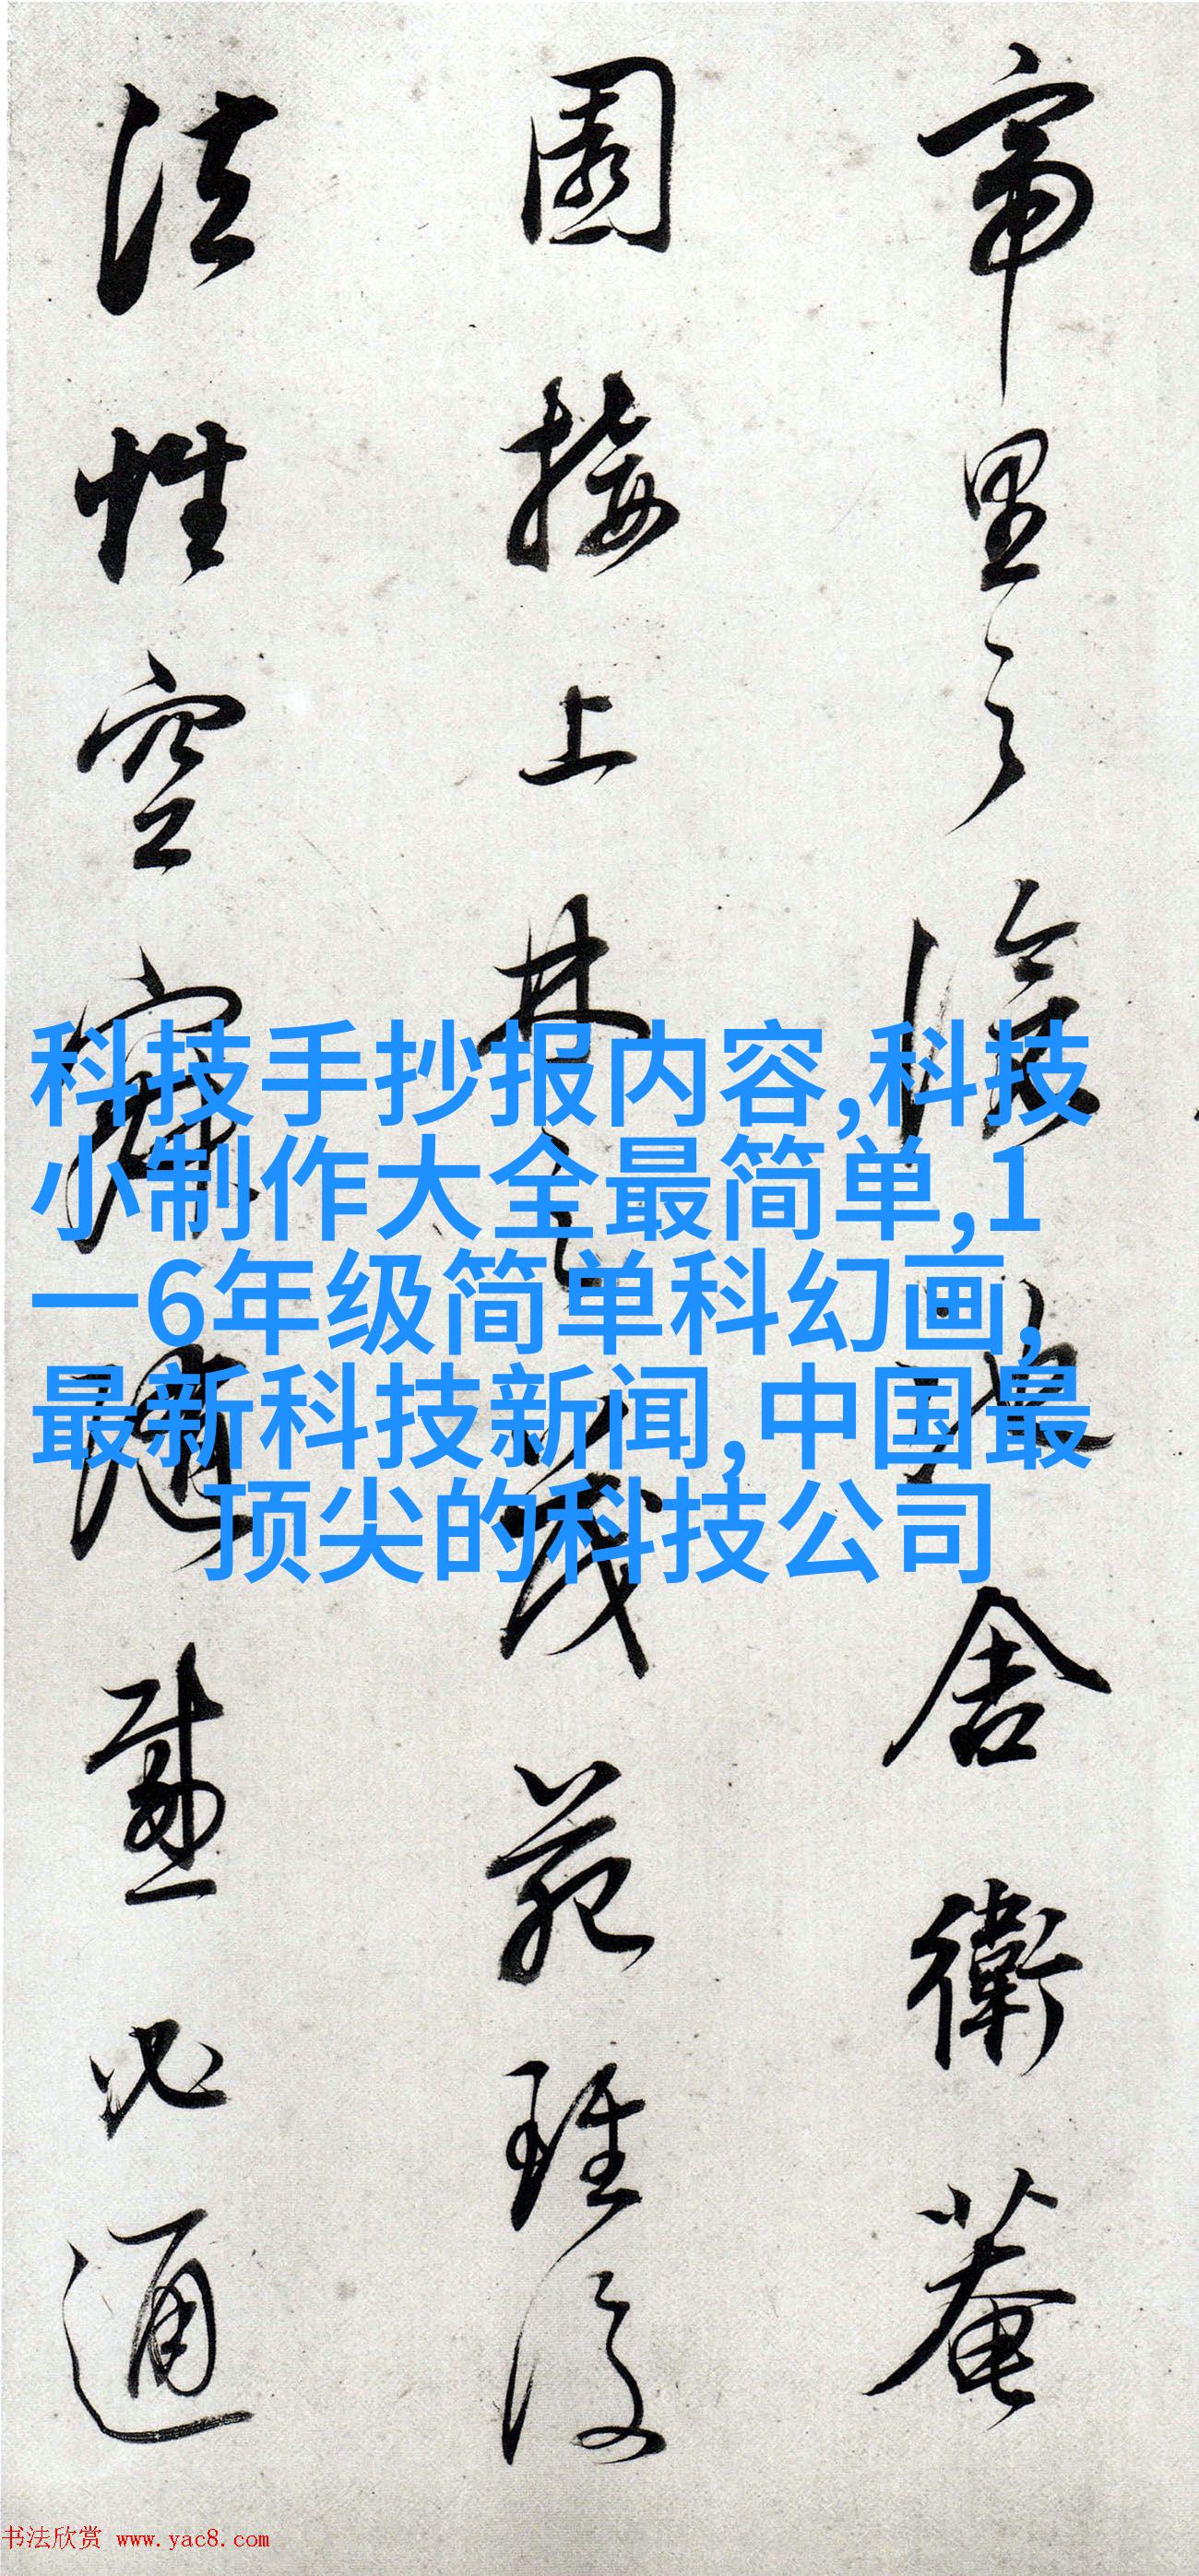 帝里之陰地舍衛菴
園接上林之茂苑雖復
法性空寂隨感必通
科技手抄报内容,科技
小制作大全最简单,1
一6年级简单科幻画,
最新科技新闻,中国最
顶尖的科技公司
书法欣赏 www.yac8.com